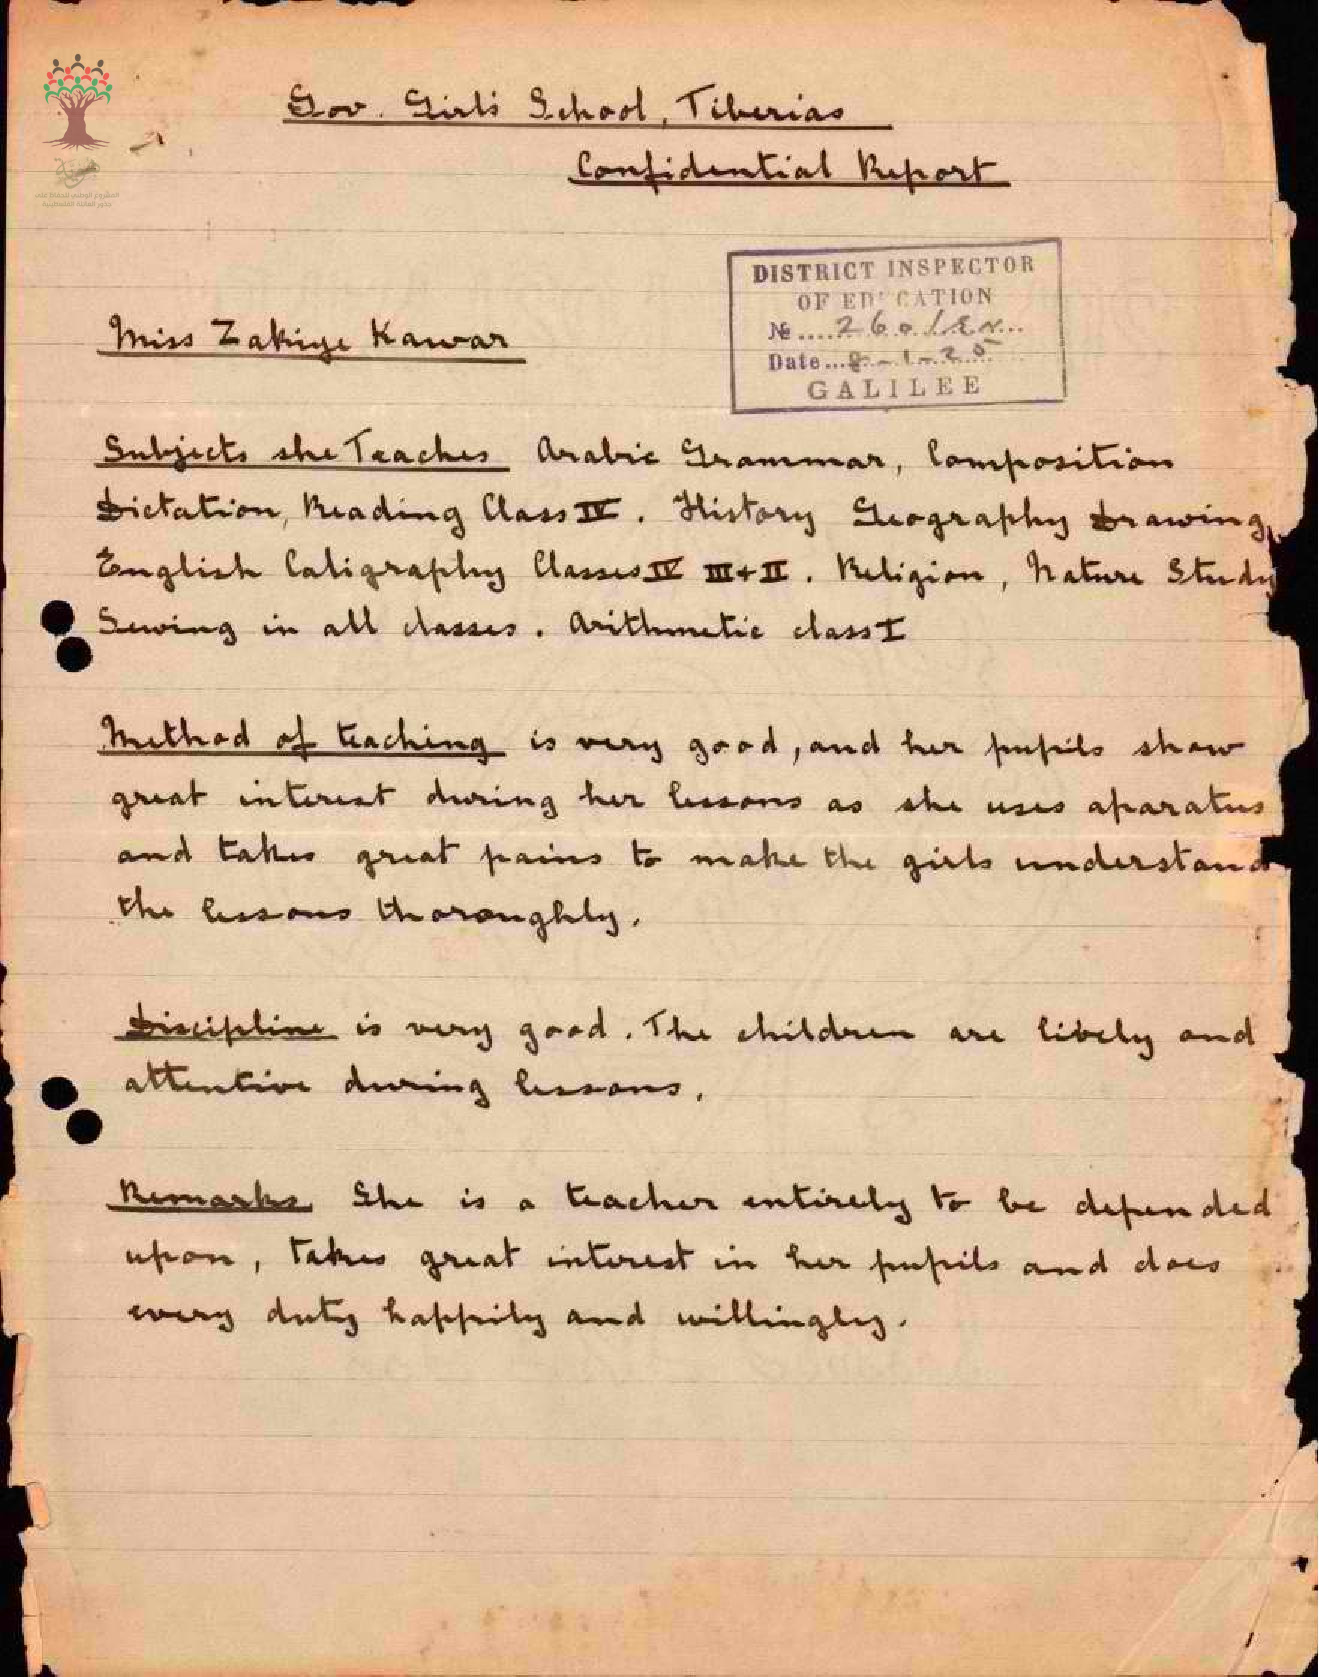 Gov. Girls School, Tiberias
Confidential Report
DISTRICT INSPECTOR
OF EDUCATION
No .... 260/En...
Date ... 8-1-25
GALILEE
Miss Zakiye Kawar
Subjects she Teaches Arabic Grammar, Composition
Dictation, Reading Class IV. History Geography Drawing,
English Caligraphy Classes IV III+II. Religion, Nature Study
Sewing in all classes. Arithmetic class I
Method of teaching is very good, and her pupils show
great interest during her lessons as she uses aparatus
and takes great pains to make the girls understand
the lessons thoroughly.
Discipline is very good. The children are lively and
attentive during lessons.
Remarks. She is a teacher entirely to be depended
upon, takes great interest in her pupils and does
every duty happily and willingly.